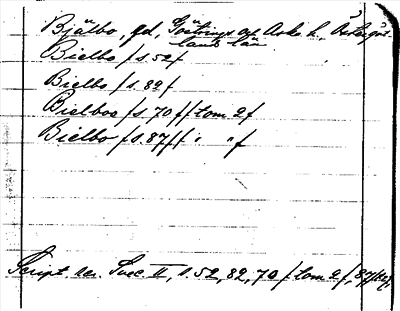 Bjälbo, gd, Göstrings o Aska h, Östergöt-
lands län
Bielbo /s. 52/
Bielbo /s. 82/
Bielbos /s. 70/ /tom 2/
Bielbo /s. 87/ / " " /
Script. rer. Svec. II, s. 52, 82, 70 /tom 2/, 87